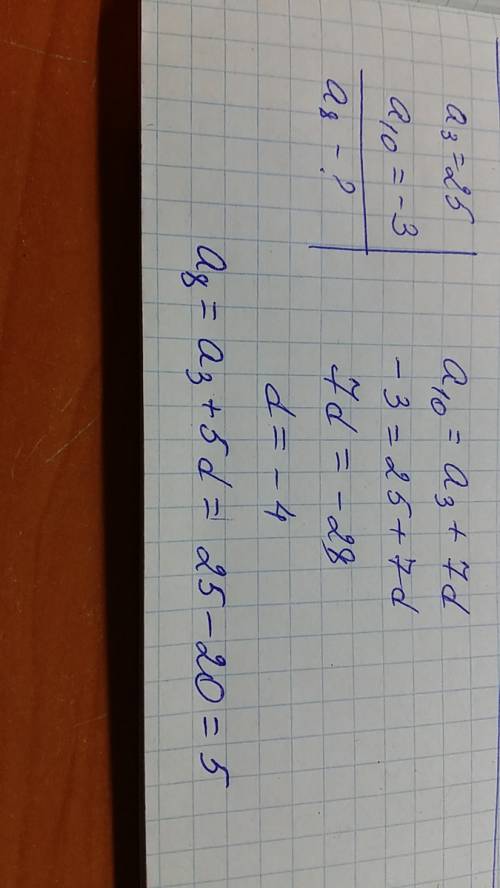 a₃ = 25
a₁₀ = -3
a₈ - ?
a₁₀ = a₃ + 7d
- 3 = 25 + 7d
7d = - 28
d = - 4
a₈ = a₃ + 5d = 25 - 20 = 5